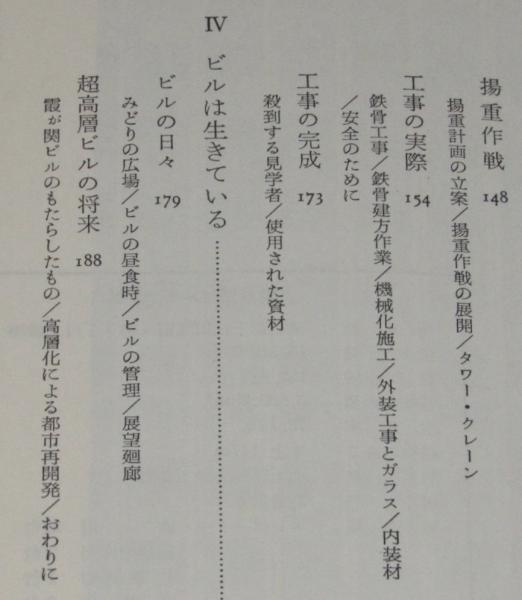 揚重作戦 148
揚重計画の立案/揚重作戦の展開/タワー・クレーン
工事の実際 154
鉄骨工事/鉄骨建方作業/機械化施工/外装工事とガラス/内装材
/安全のために
工事の完成 173
殺到する見学者/使用された資材
Ⅳ ビルは生きている……………………
ビルの日々 179
みどりの広場/ビルの昼食時/ビルの管理/展望廻廊
超高層ビルの将来 188
霞が関ビルのもたらしたもの/高層化による都市再開発/おわりに